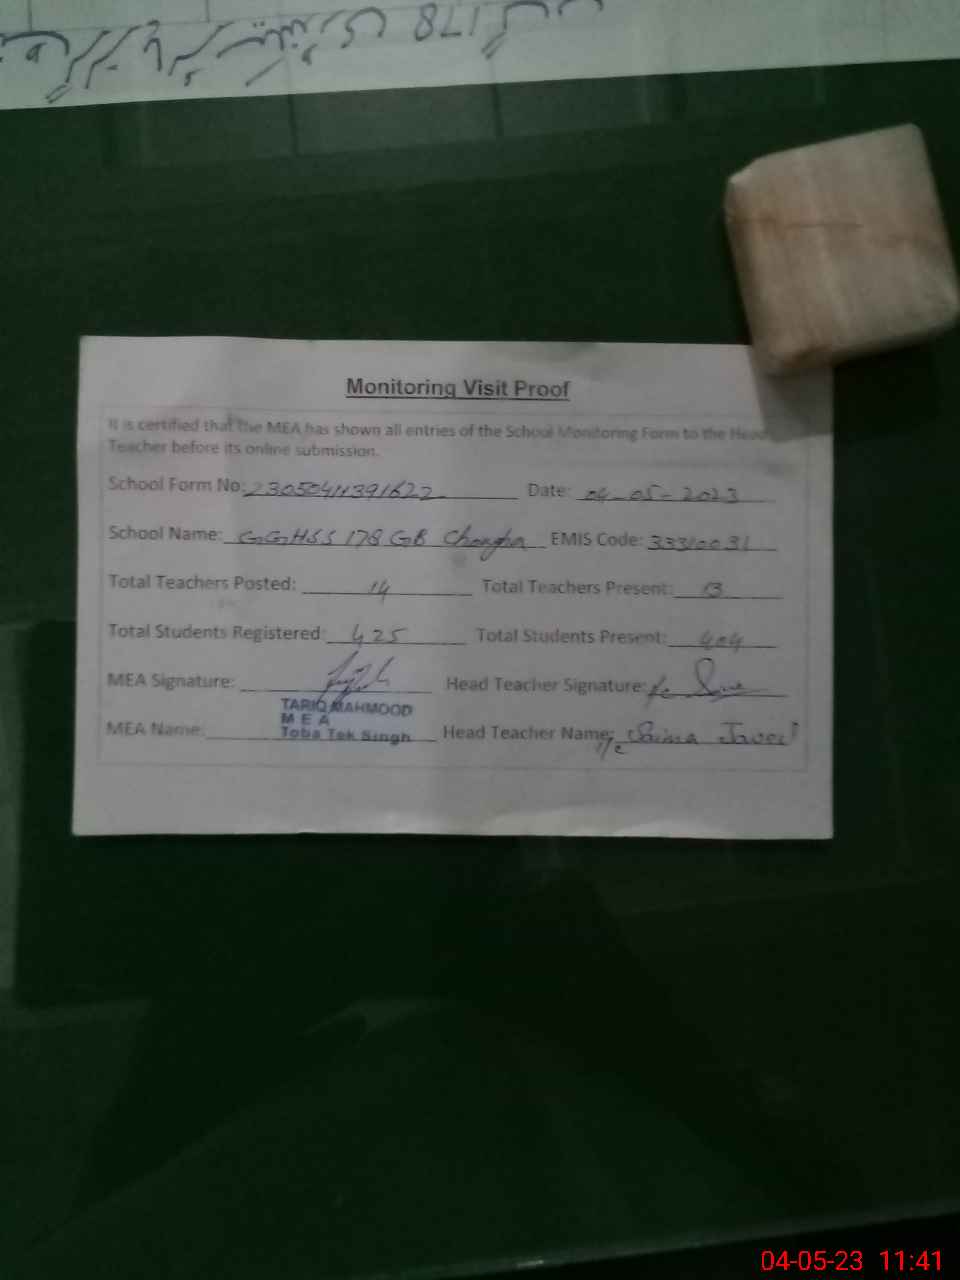 178
Monitoring Visit Proof
It is certified that the MEA has shown all entries of the School Monitoring Form to the Head
Teacher before its online submission.
School Form No: 23050411391622 Date: 04-05-2023
School Name: GGHSS 178 GB Changha EMIS Code: 33310031
Total Teachers Posted: 14 Total Teachers Present: 13
Total Students Registered: 425 Total Students Present: 404
MEA Signature: Head Teacher Signature:
TARIQ MAHMOOD
M E A
MEA Name: Toba Tek Singh Head Teacher Name: I/c Saima Javed
04-05-23 11:41